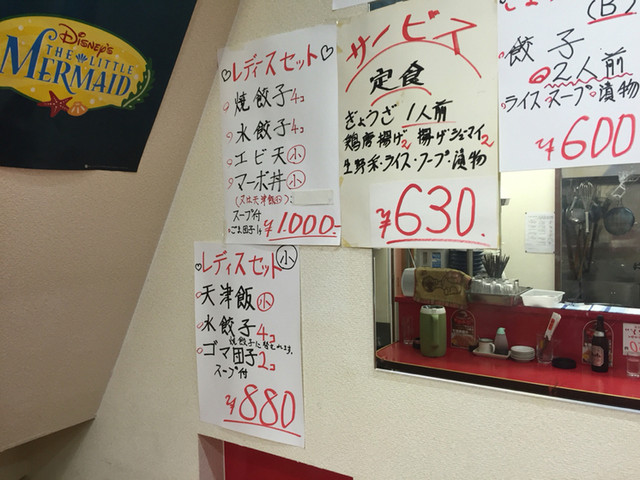 Disney's
THE LITTLE
MERMAID
レディースセット
焼餃子4コ
水餃子4コ
エビ天小
マーボ丼小
(又は天津飯小)
スープ付
ごま団子1ヶ
¥1.000-
サービス
定食
ぎょうざ1人前
鶏唐揚げ2 揚げシューマイ2
生野菜・ライス・スープ・漬物
¥630.
(B)
餃子
2人前
ライス・スープ・漬物
¥600
レディスセット小
天津飯小
水餃子4コ
焼餃子に替えれます。
ゴマ団子2コ
スープ付
¥880